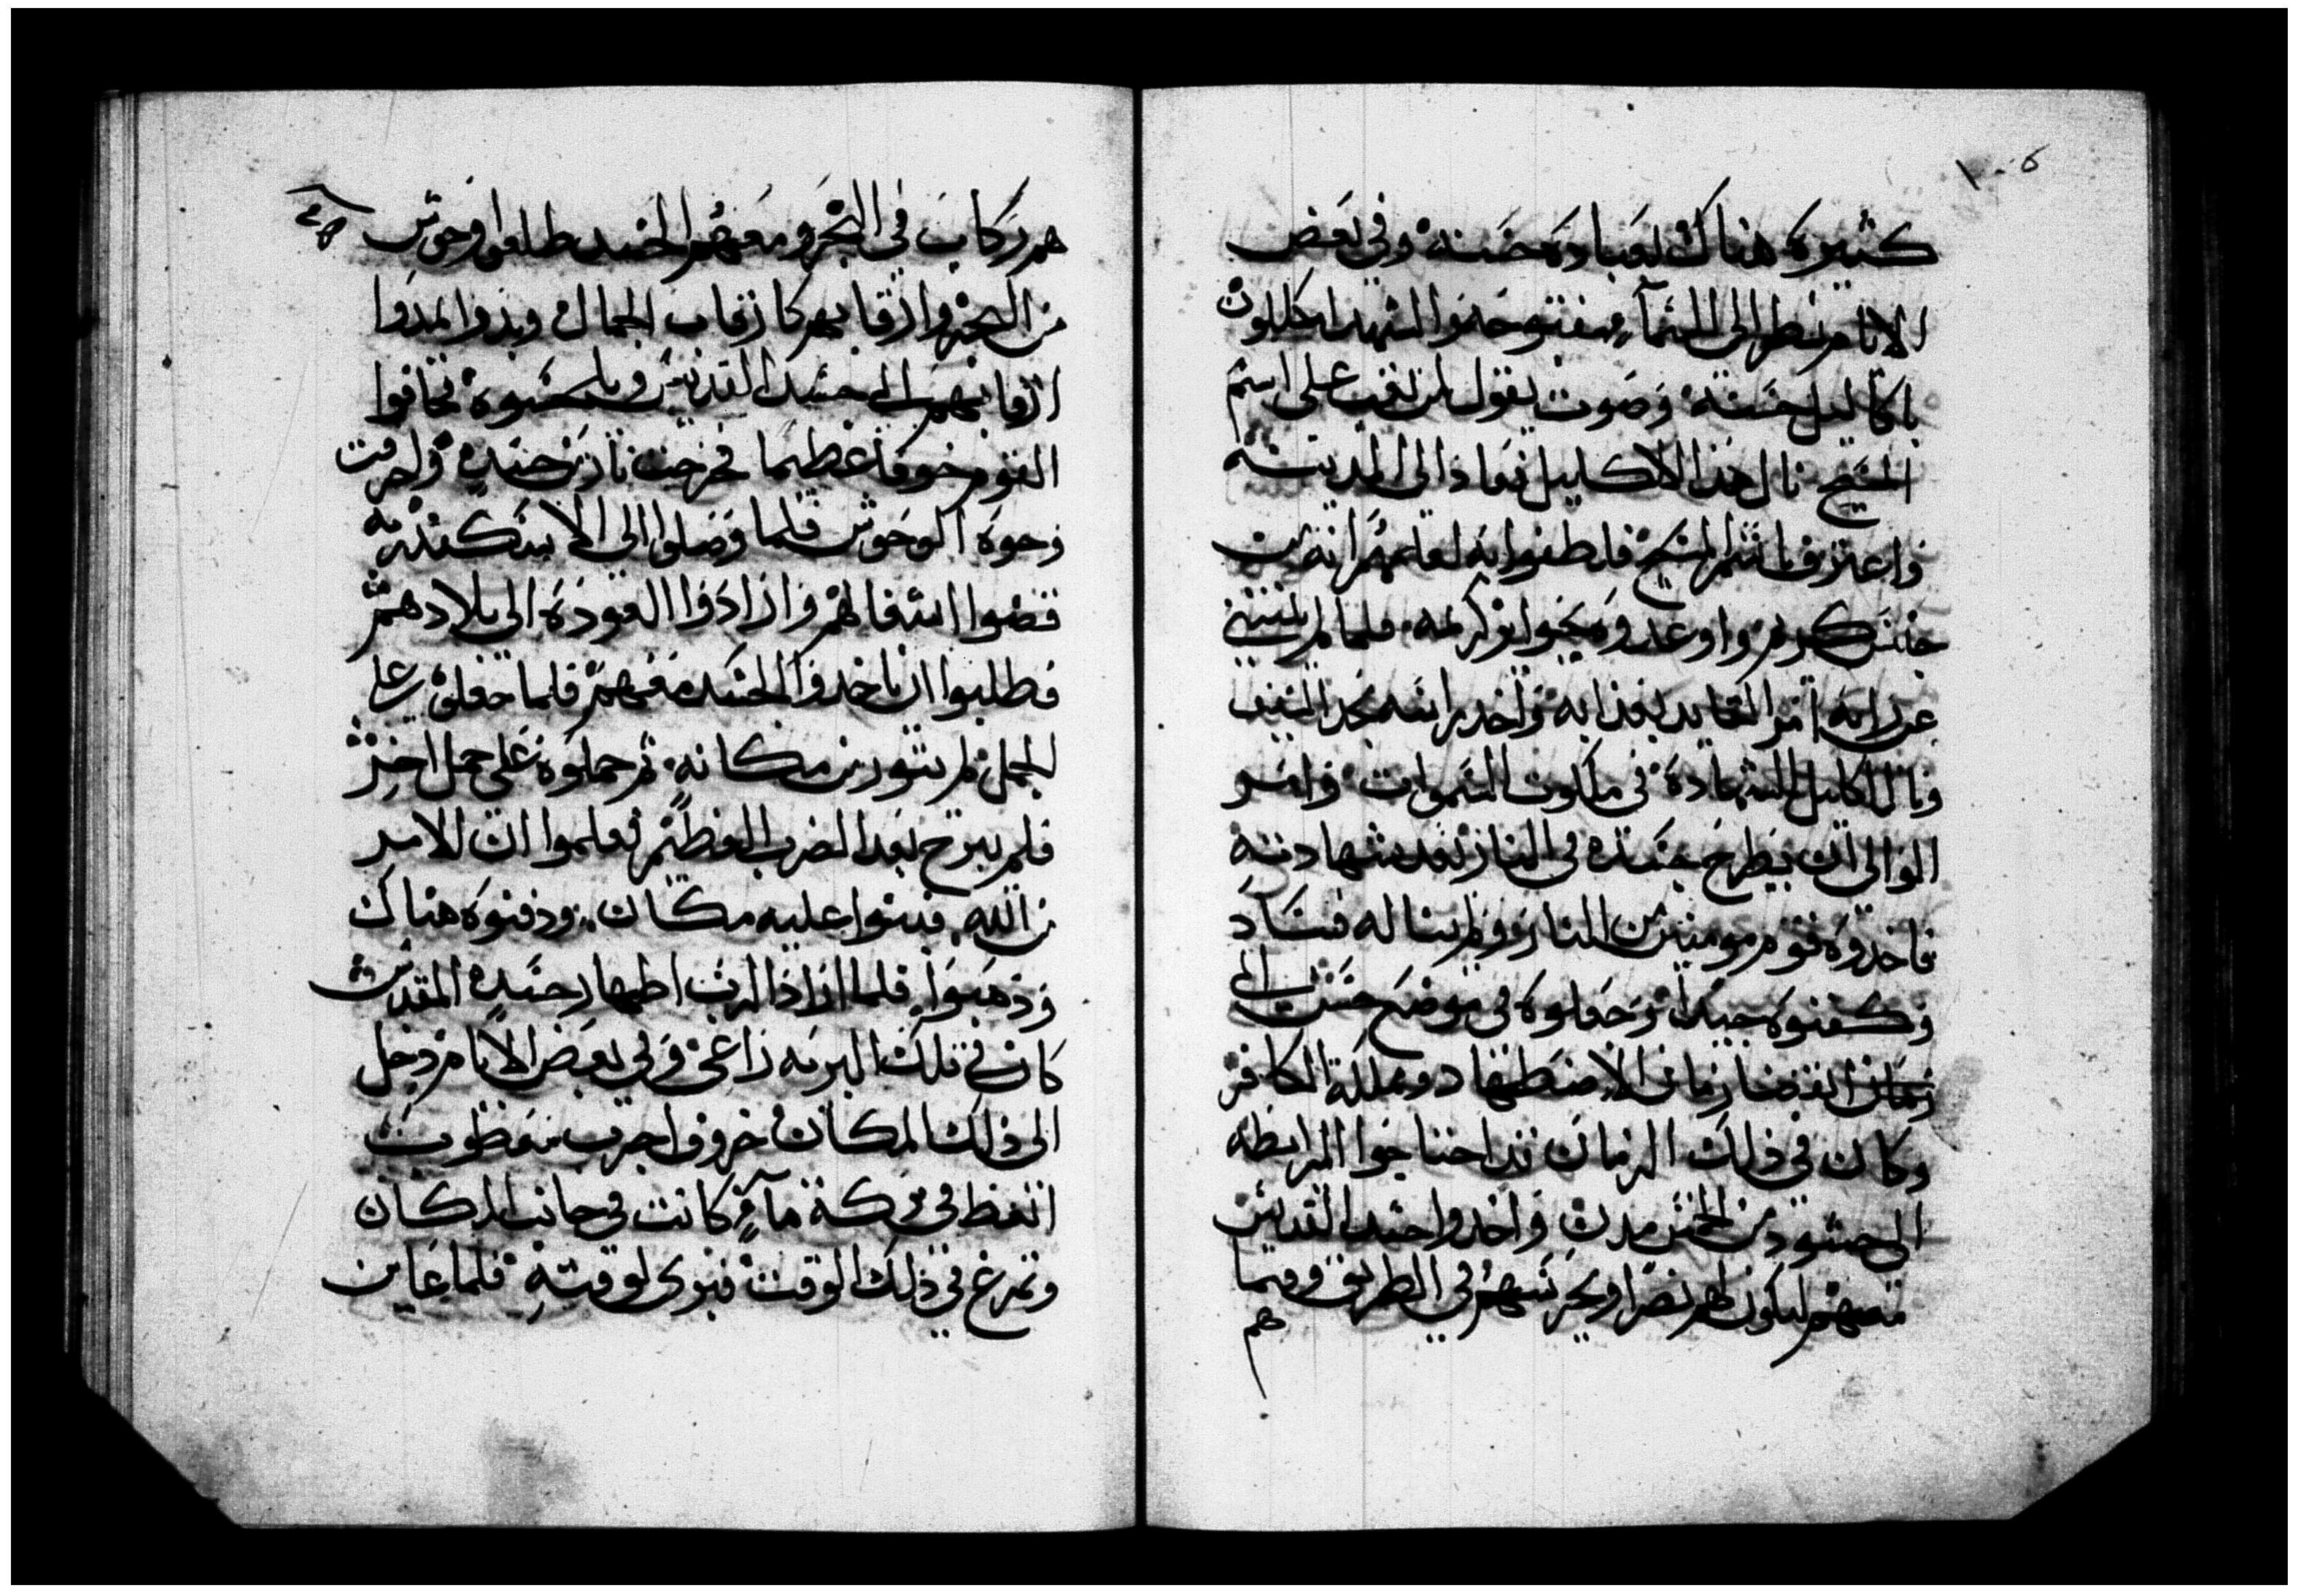 ١٠٥
كثيره هناك لعباده حسنة وفي بعض
الايام نظر الي السما مفتوحه والشهدا يكللون
باكاليل حسنه وصوت يقول من تعب علي اسم
المسيح نال هذا الاكليل فعاد الي المدينه
واعترف باسم المسيح فلاطفوا به لعلمهم انه من
جنس كريم واوعدوه بجوايز كريمه فلما لم ينثني
عن رايه امر القايد بعذابه واخد راسه بحد السيف
ونال اكليل الشهاده في ملكوت السموات وامر
الوالي ان يطرح جسده في النار بعد شهادته
فاخدوه قوم مومنين من النار ولم يناله فساد
وكفنوه جيدا وجعلوه في موضع حسن الي
زمان انقضا زمان الاضطهاد ومملكة الكافر
وكان في ذلك الزمان قد احتاجوا المرابطه
الي جنود من الخمس مدن واخدوا جسد القديس
معهم ليكون لهم نصرا ويحرسهم في الطريق وفيما
هم
هم ركاب في البحر ومعهم الجسد طلعوا وحوش
من البحر وارقابهم كارقاب الجمال وبدوا يمدوا
ارقابهم الي جسد القديس ويلحسوه فخافوا
القوم خوفا عظيما فخرجت نار من جسده واحرقت
وجوه الوحوش فلما وصلوا الي الاسكندريه
قضوا اشغالهم وارادوا العوده الي بلادهم
فطلبوا ان ياخدوا الجسد معهم فلما جعلوه علي
الجمل لم يثور من مكانه ثم حملوه علي جمل اخر
فلم يبرح بعد الضرب العظيم فعلموا ان الامر
من الله فبنوا عليه مكان ودفنوه هناك
وذهبوا فلما اراد الرب اظهار جسده المقدس
كان في تلك البريه راعي وفي بعض الايام دخل
الي ذلك المكان خروف اجرب
في بركة مآء كانت في جانب المكان
وتمرغ في ذلك الوقت فبري لوقته فلما عاين